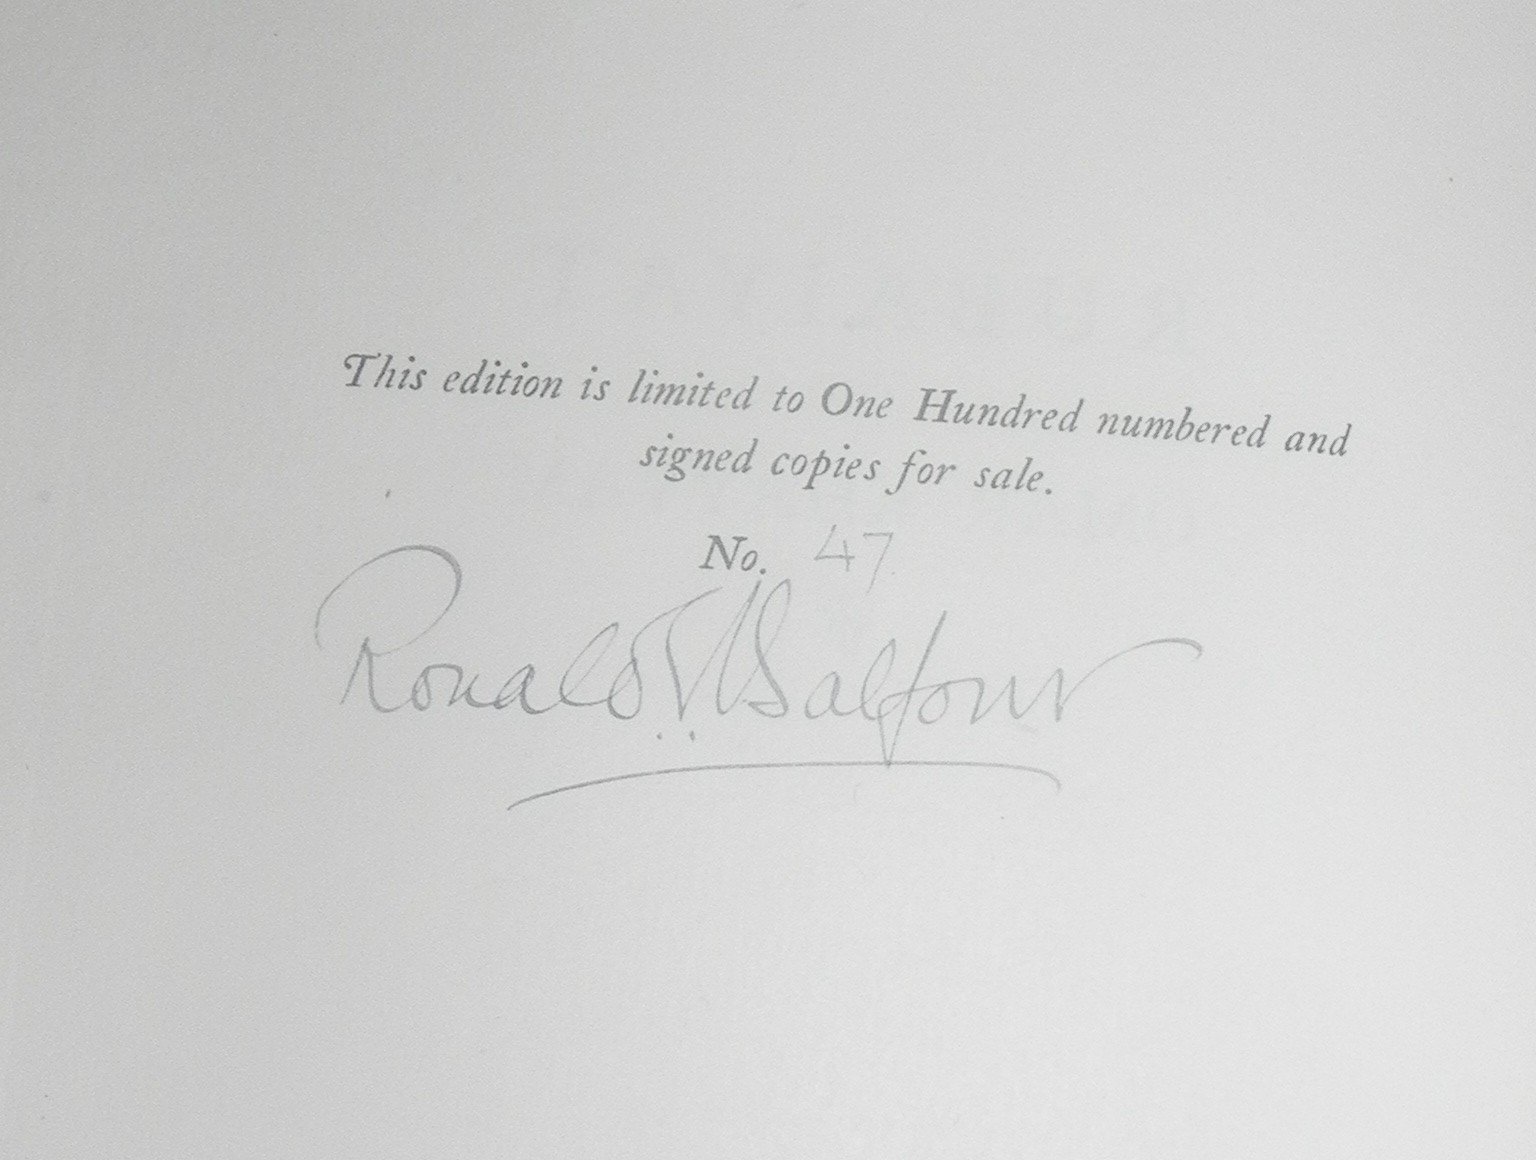 This edition is limited to One Hundred numbered and
signed copies for sale.
No. 47
Ronald Balfour